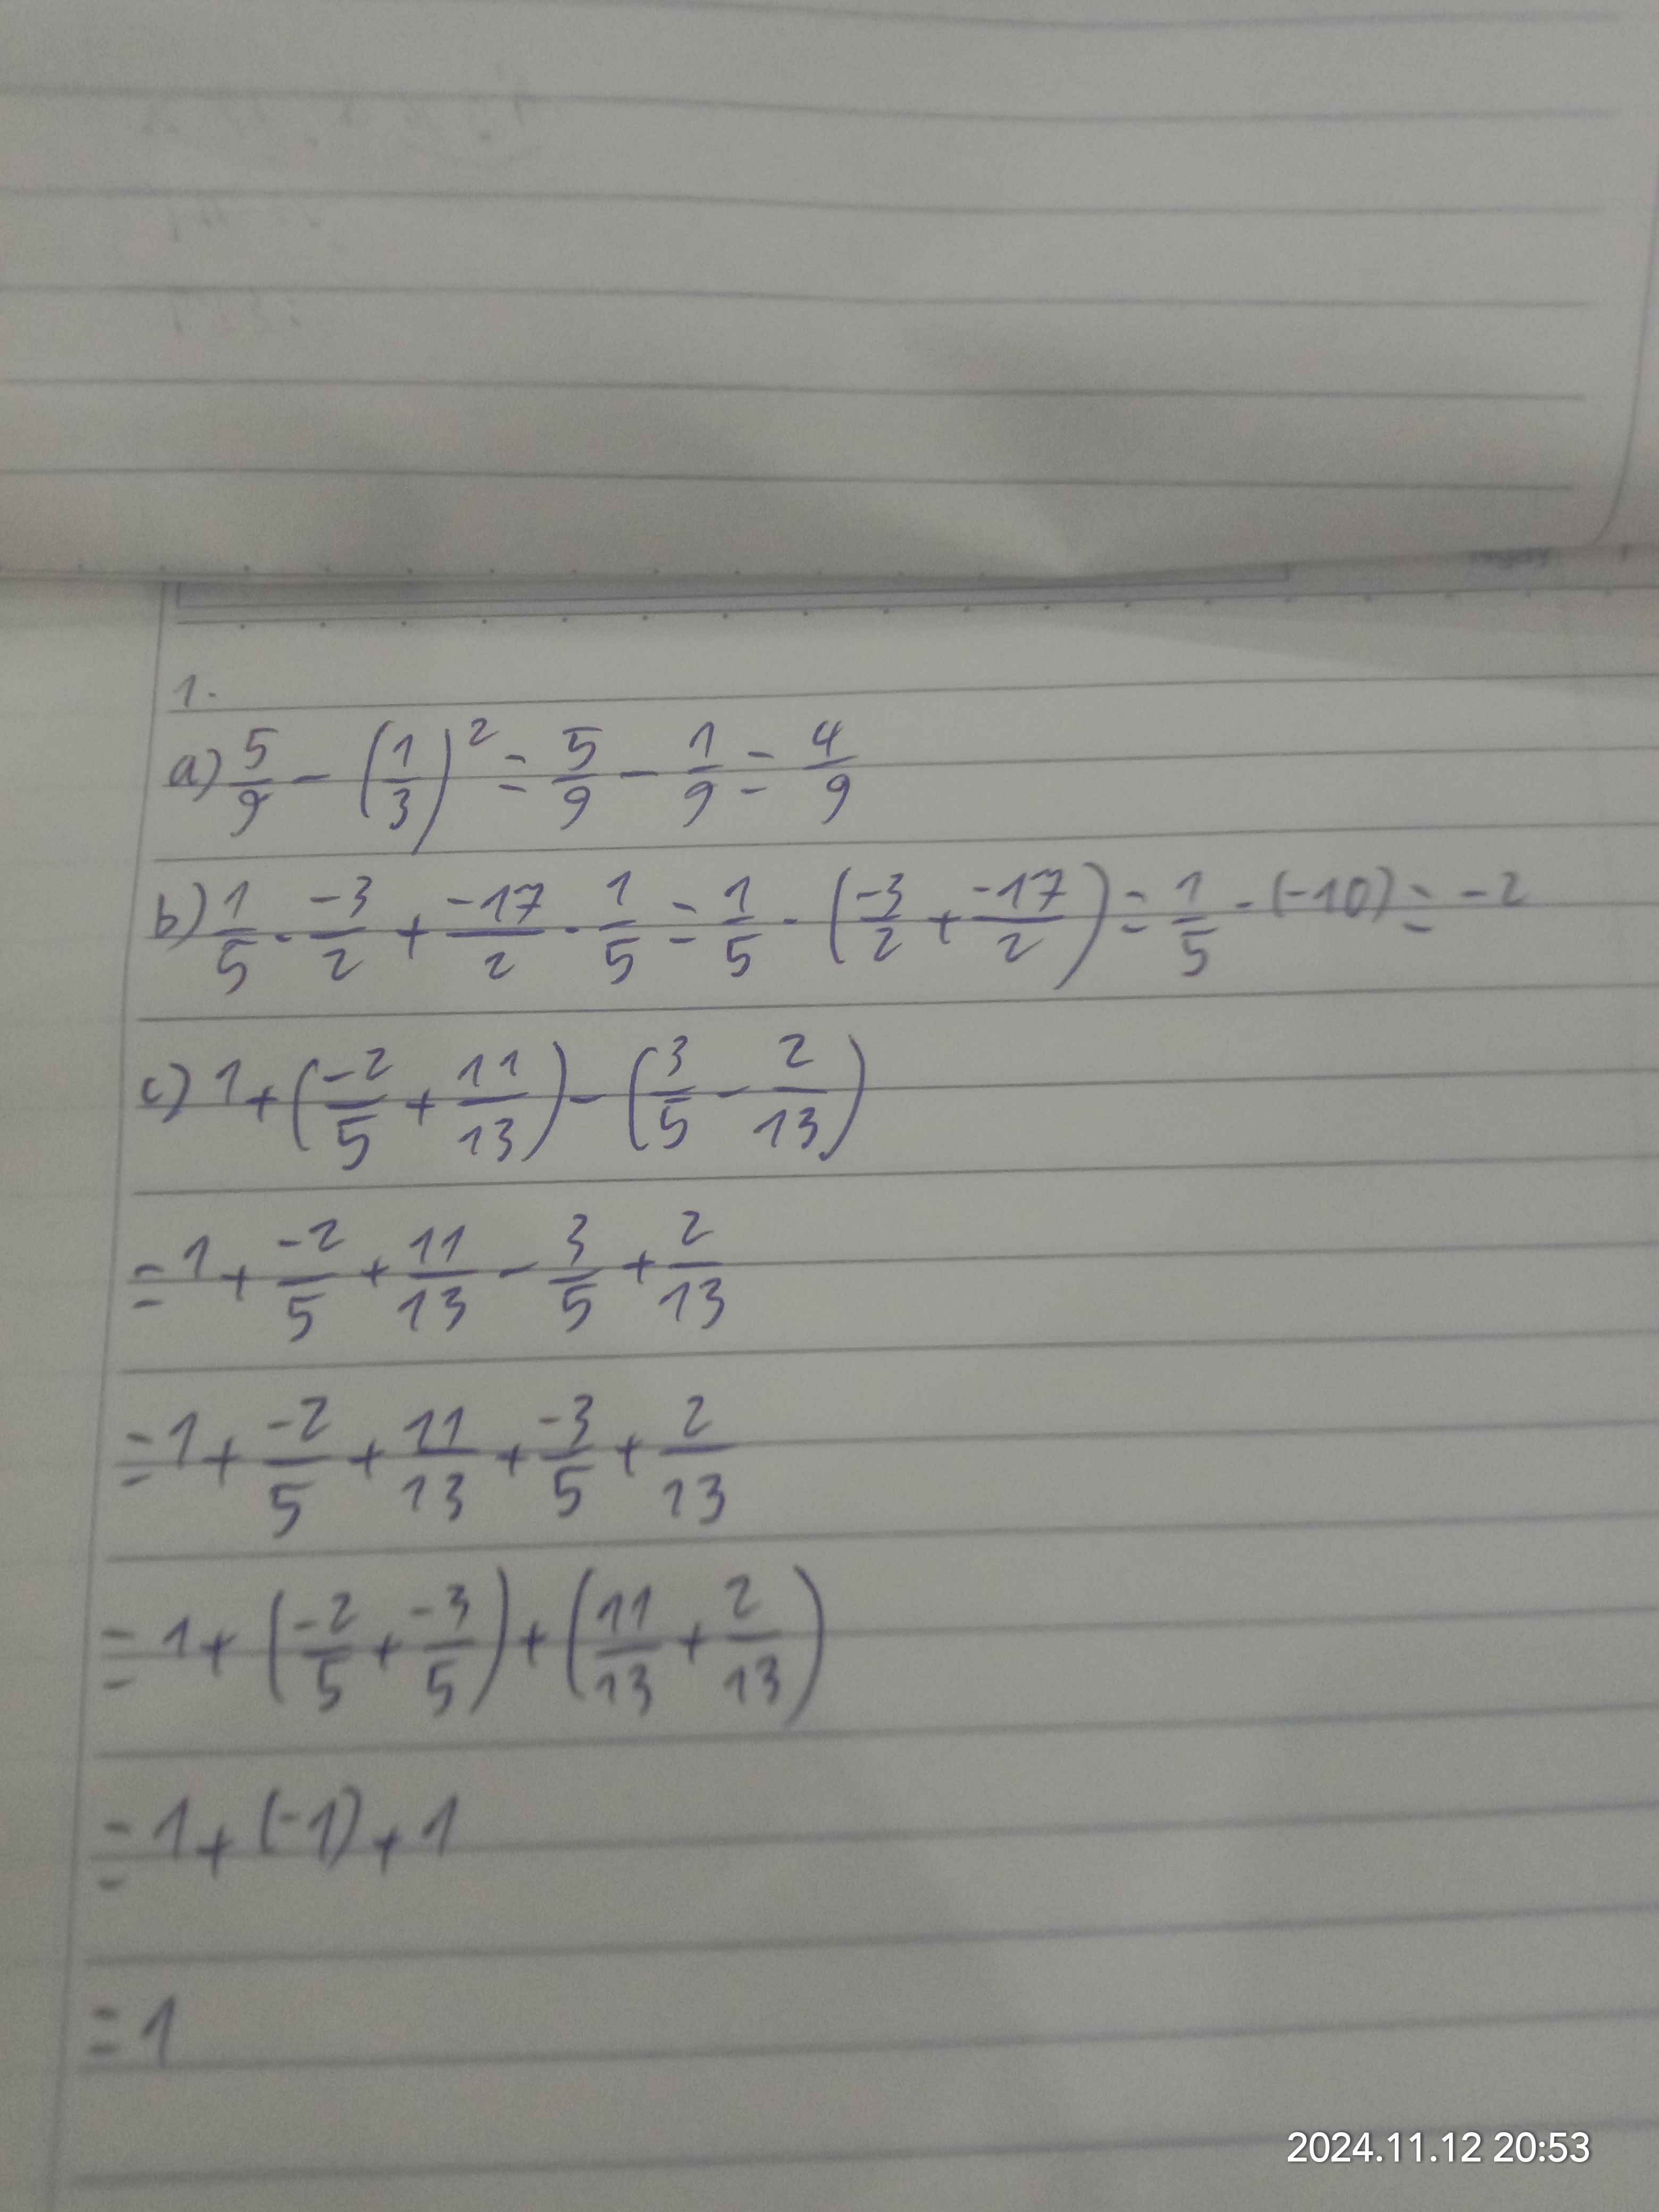 1.
a) 5/9 - (1/3)² = 5/9 - 1/9 = 4/9
b) 1/5 · -3/2 + -17/2 · 1/5 = 1/5 · (-3/2 + -17/2) = 1/5 · (-10) = -2
c) 1 + (-2/5 + 11/13) - (3/5 - 2/13)
= 1 + -2/5 + 11/13 - 3/5 + 2/13
= 1 + -2/5 + 11/13 + -3/5 + 2/13
= 1 + (-2/5 + -3/5) + (11/13 + 2/13)
= 1 + (-1) + 1
= 1
2024.11.12 20:53